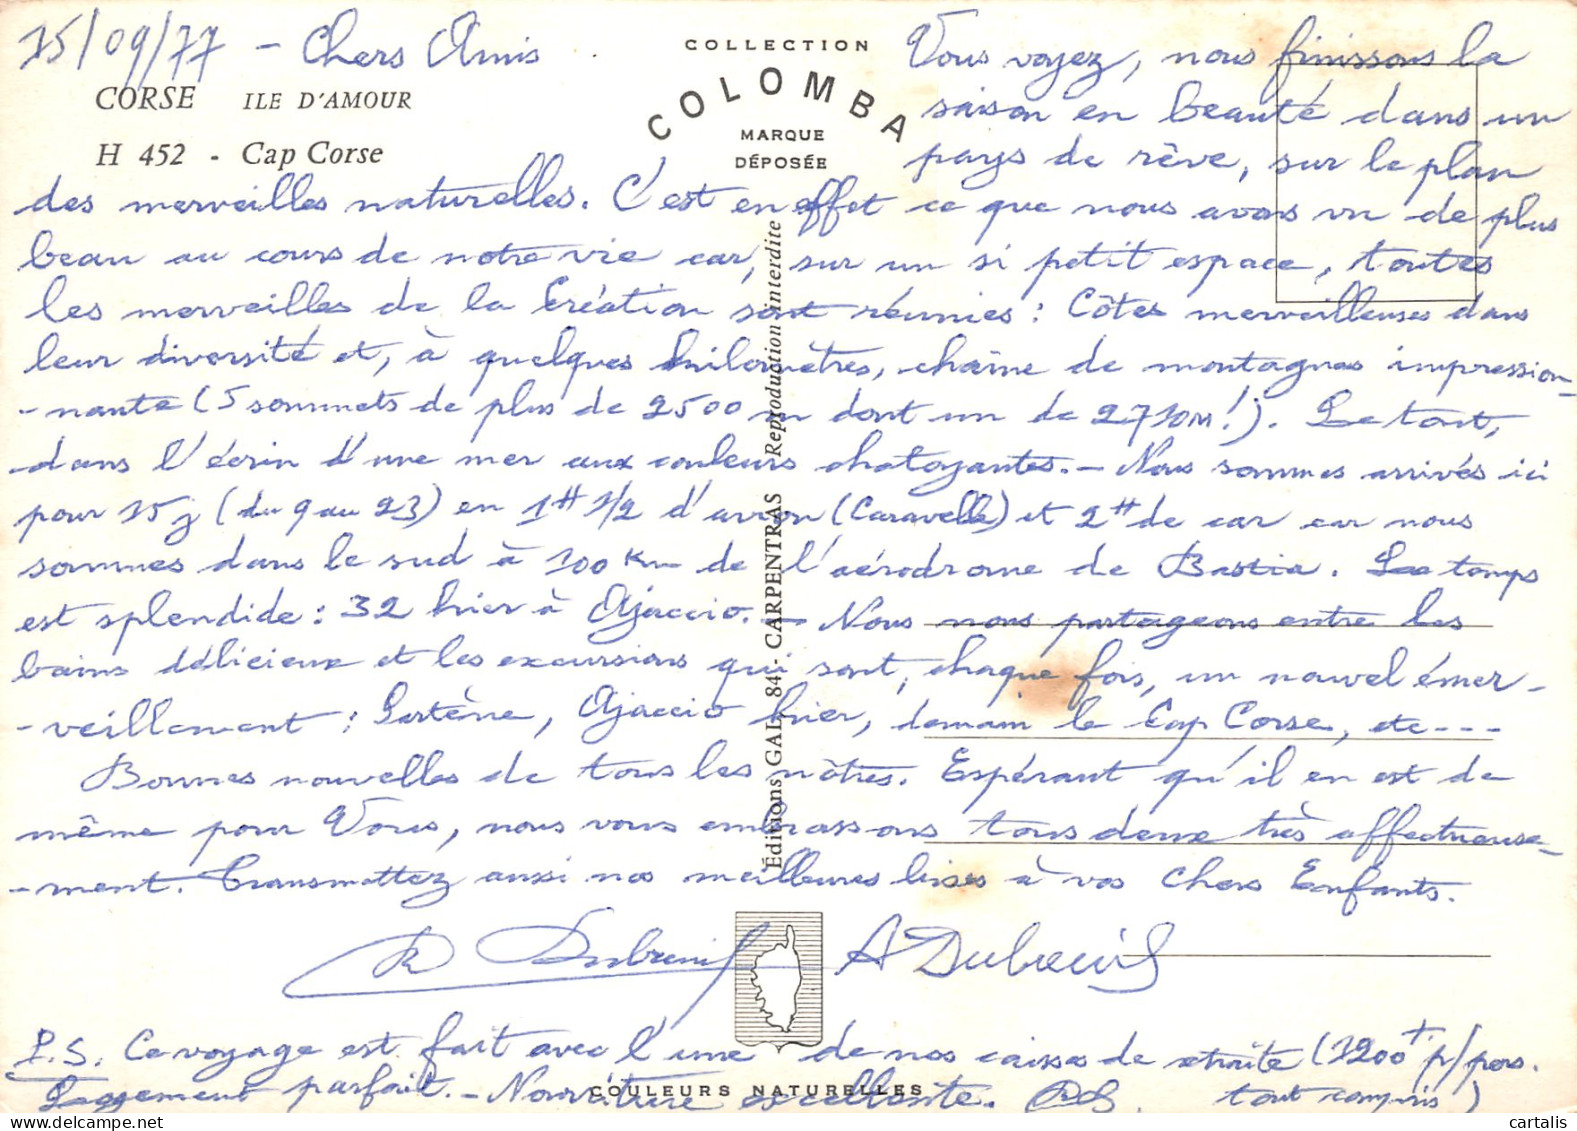 15/09/77 - Chers Amis
CORSE ILE D'AMOUR
H 452 - Cap Corse
COLLECTION
COLOMBA
MARQUE
DÉPOSÉE
Vous voyez, nous finissons la
saison en beauté dans un
pays de rêve, sur le plan
des merveilles naturelles. C'est en effet ce que nous avons vu de plus
beau au cours de notre vie car, sur un si petit espace, toutes
les merveilles de la Création sont réunies : Côtes merveilleuses dans
leur diversité et, à quelques kilomètres, chaîne de montagnes impression-
-nante (5 sommets de plus de 2500 m dont un de 2710m!). Le tout,
dans l'écrin d'une mer aux couleurs chatoyantes. - Nous sommes arrivés ici
pour 15j (du 9 au 23) en 1H 1/2 d'avion (Caravelle) et 2H de car car nous
sommes dans le sud à 100 Km de l'aérodrome de Bastia. Le temps
est splendide : 32 hier à Ajaccio. - Nous nous partageons entre les
bains délicieux et les excursions qui sont, chaque fois, un nouvel émer-
-veillement : Sartène, Ajaccio hier, demain le Cap Corse, etc ---
Bonnes nouvelles de tous les nôtres. Espérant qu'il en est de
même pour Vous, nous vous embrassons tous deux très affectueuse-
-ment. Transmettez aussi nos meilleures bises à vos Chers Enfants.
R Dubreuil A Dubreuil
P.S. Ce voyage est fait avec l'une de nos caisses de retraite (1200F p/pers.
Logement parfait. - Nourriture excellente. tout compris)
Éditions GAL - 84 - CARPENTRAS Reproduction interdite
COULEURS NATURELLES
cartalis